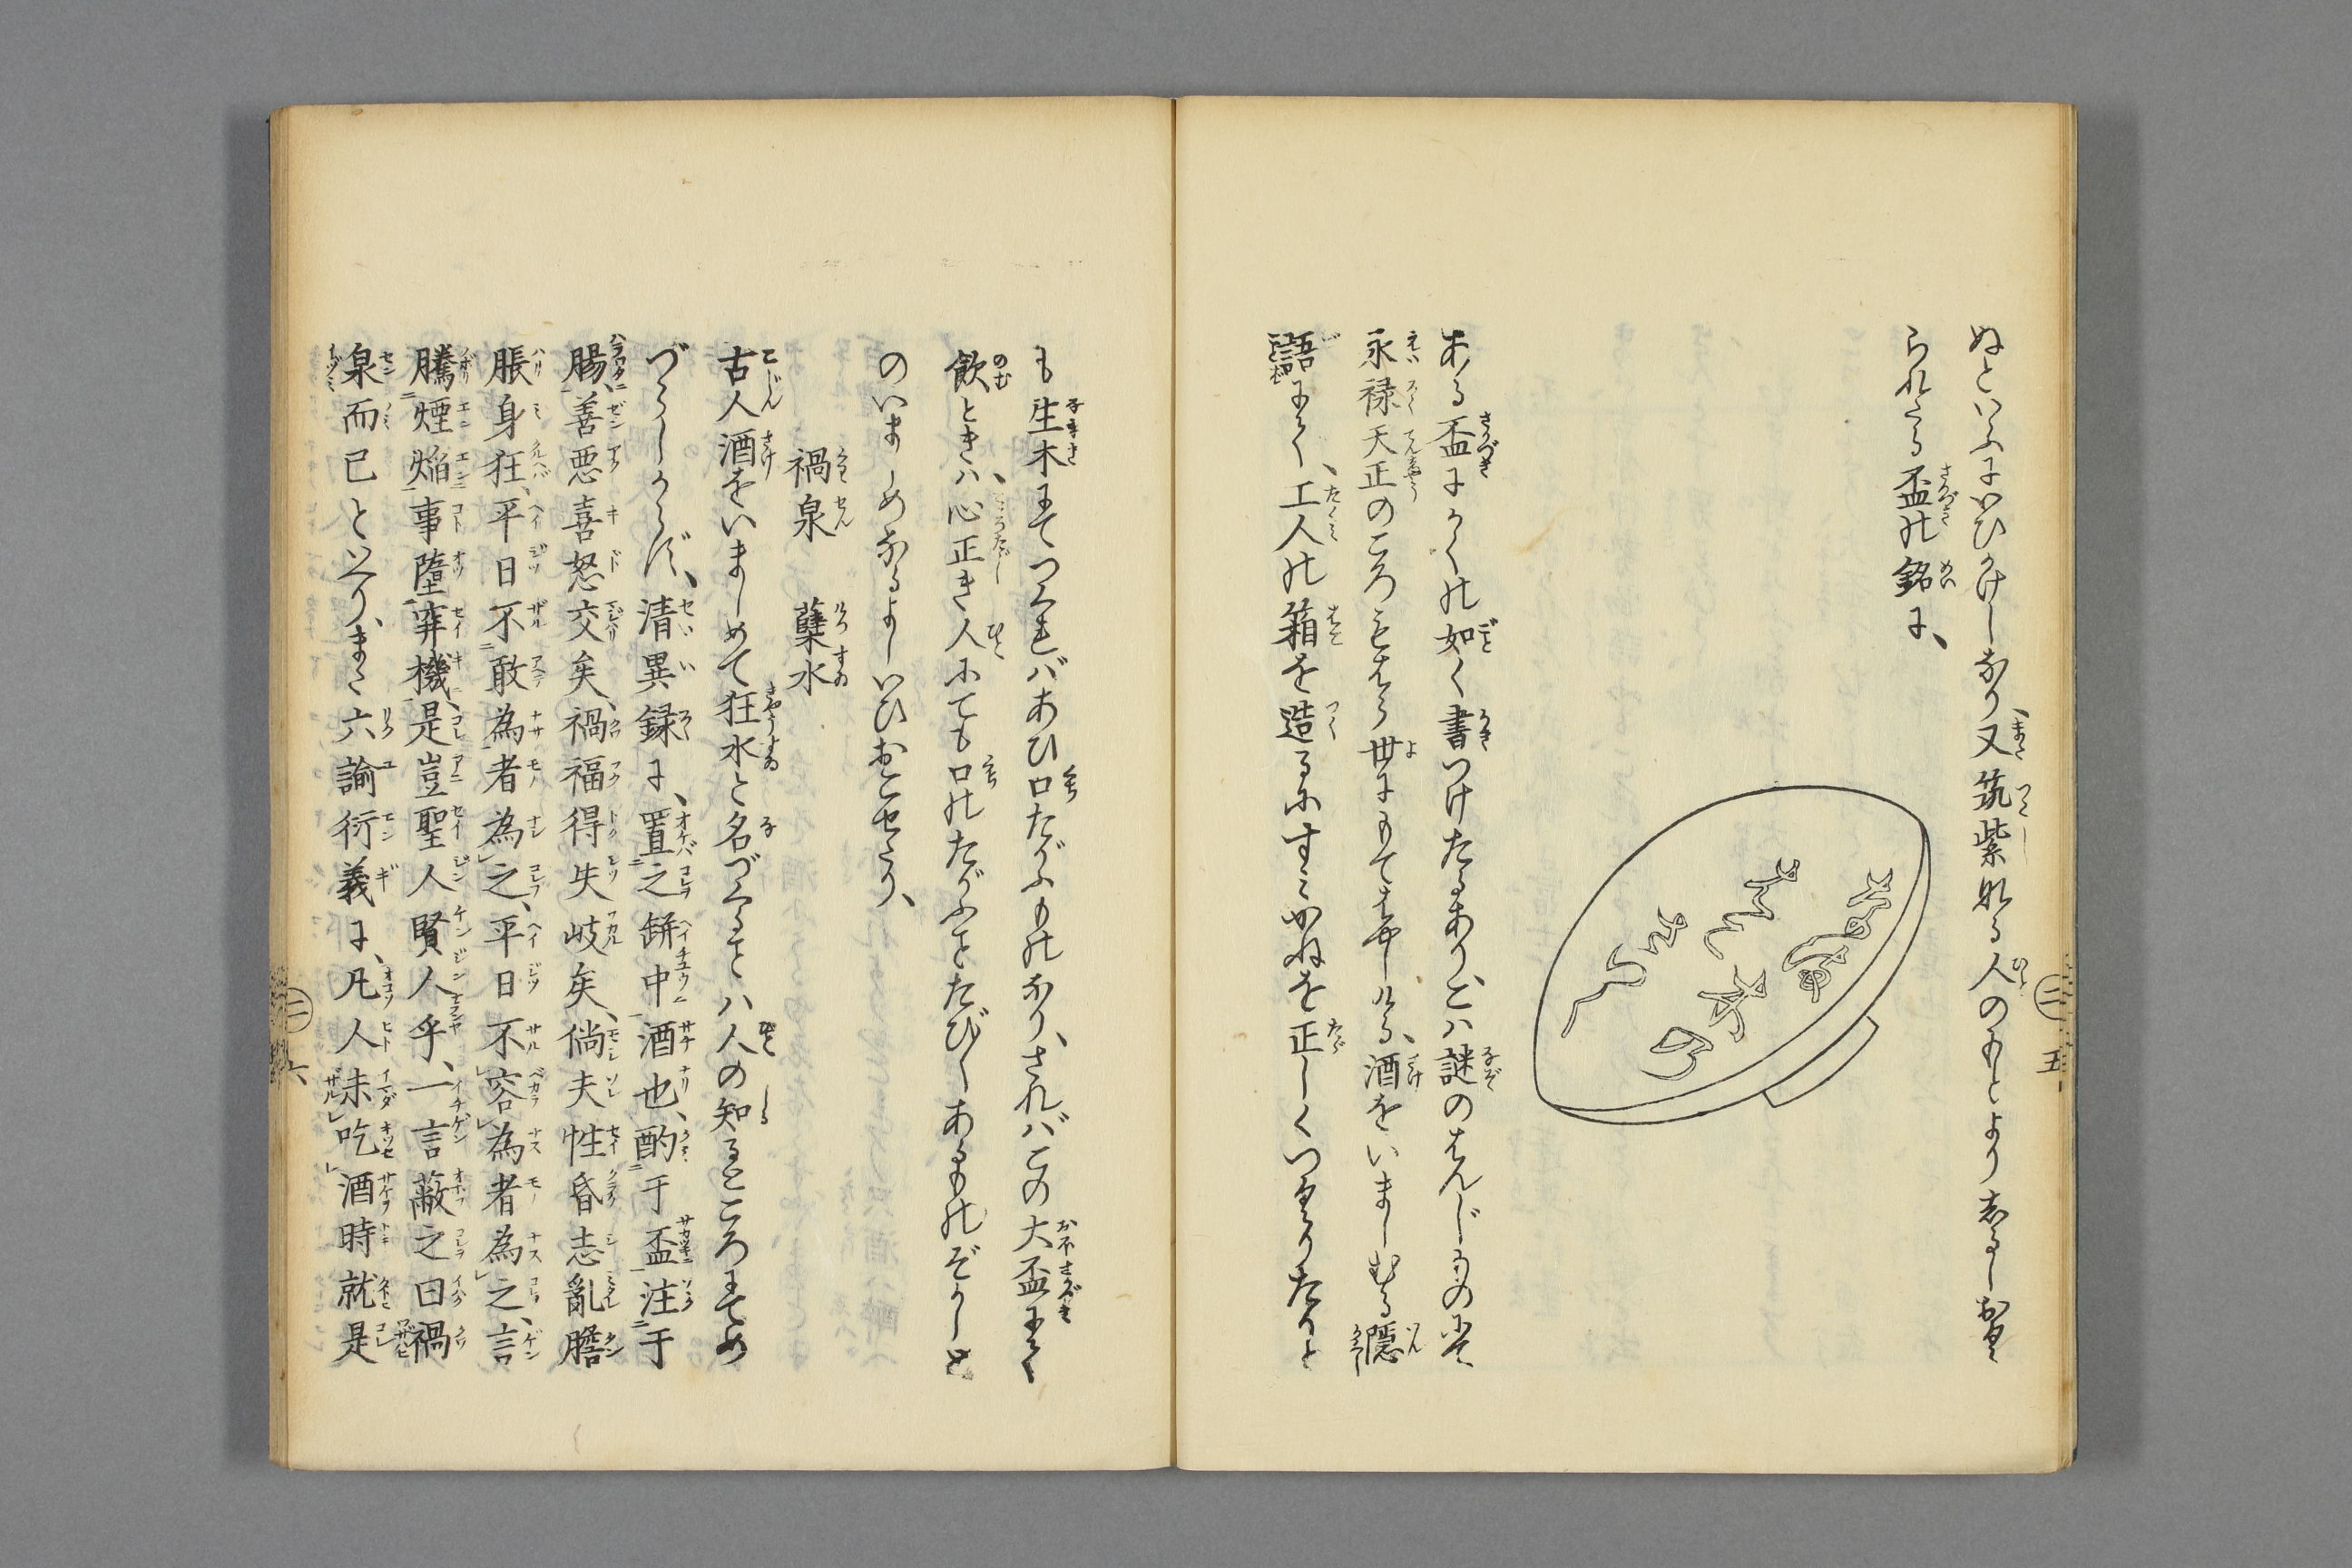 ぬといふにいひかけしなり、又筑紫なる人のもとよりしるしおく
られたる盃の銘に、
ある盃にかくの如く書つけたるあり、こハ謎のはんじものにて、
永禄天正のころもはら世にもてはやしける、酒をいましむる隠
語にて、工人の箱を造るにすミがねを正しくつもりたりと
二 五
も生木にてつくれバあひ口たがふものなり、されバこの大盃にて
飲ときハ、心正き人にても口のたがふことたび〱あるものぞかしと
のいましめなるよしいひおこせたり、
禍泉 蘖水
古人酒をいましめて狂水と名づくることハ人の知るところにてめ
づらしからず、清異録に、置之缾中酒也、酌于盃注于
腸、善悪喜怒交矣、禍福得失岐矣、倘夫性昏志亂膽
脹身狂、平日不敢為者為之、平日不容為者為之、言
騰煙焔事墮穽機、是豈聖人賢人乎、一言蔽之曰禍
泉而已といへり、また六諭衍義に、凡人未吃酒時就是
二 六